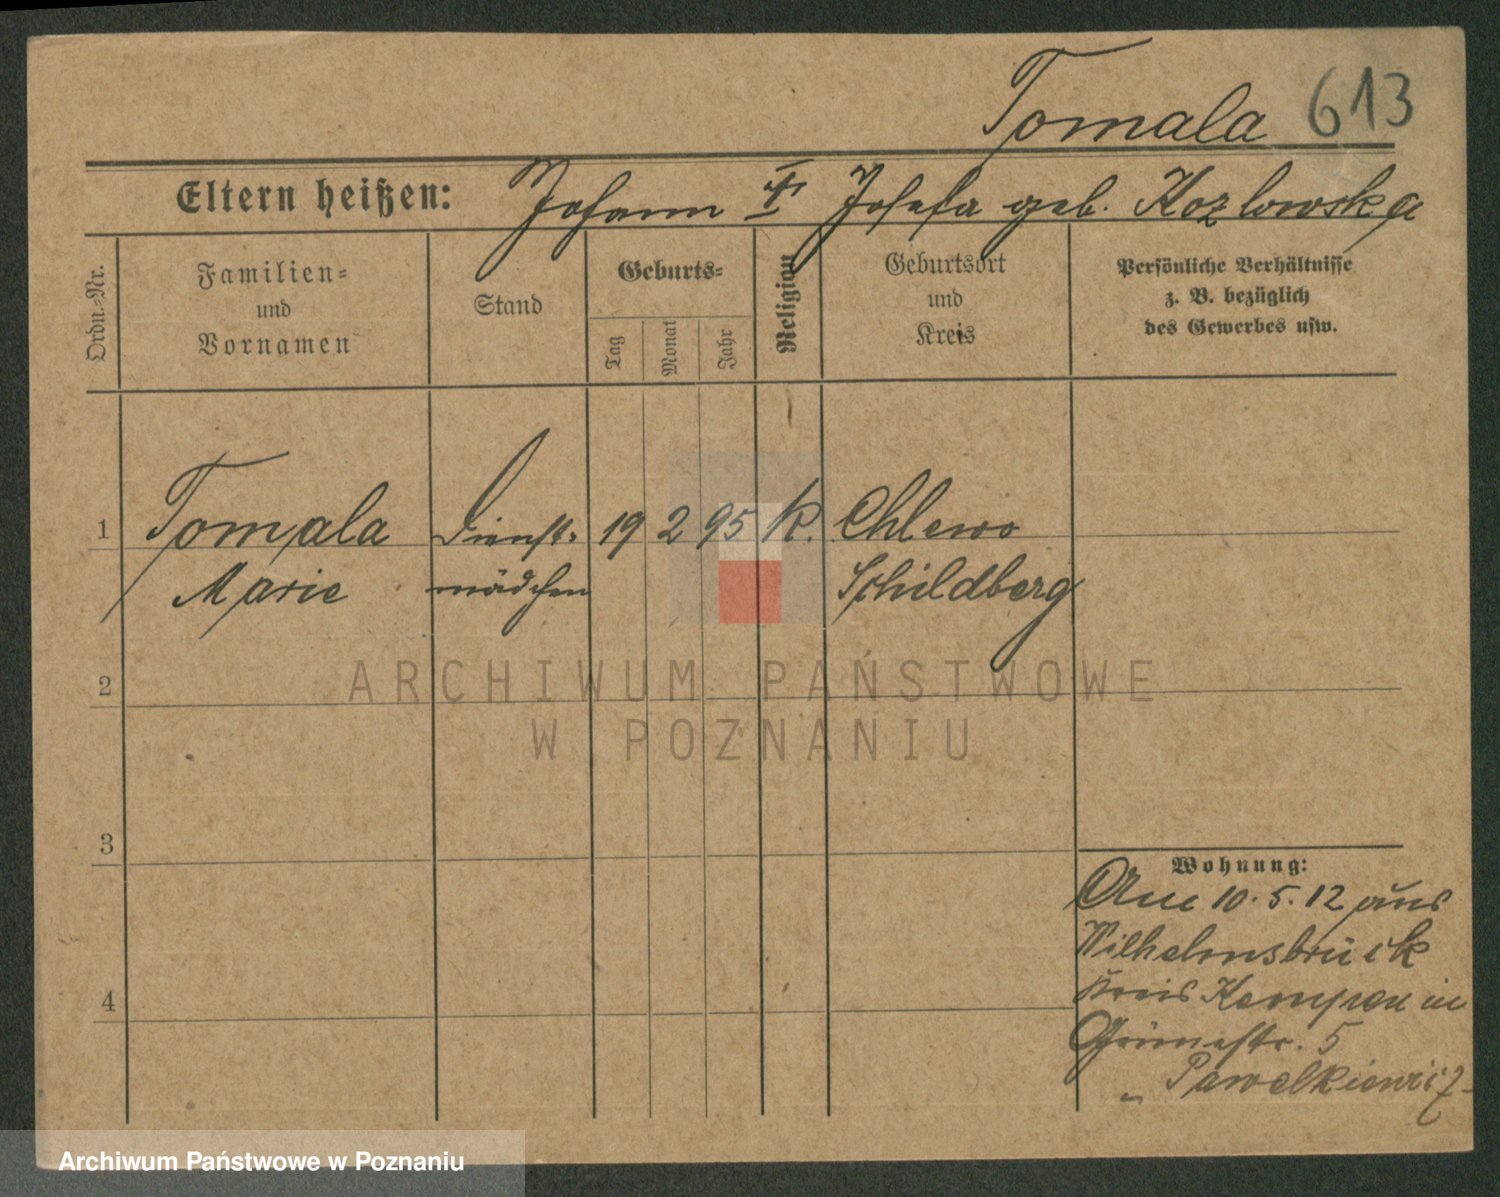 Tomala 613
Eltern heißen: Johann ♰ Josefa geb. Kozlowska
Ordn.-Nr.
Familien-
und
Vornamen
Stand
Geburts-
Tag
Monat
Jahr
Religion
Geburtsort
und
Kreis
Persönliche Verhältnisse
z. B. bezüglich
des Gewerbes usw.
1 Tomala Dienst- 19 2 95 k. Chlewo
Marie mädchen Schildberg
2
3
4
Wohnung:
Am 10.5.12 aus
Wilhelmsbrück
Kreis Kempen in
Grünestr. 5
" Pawelkiewicz
ARCHIWUM PAŃSTWOWE
W POZNANIU
Archiwum Państwowe w Poznaniu